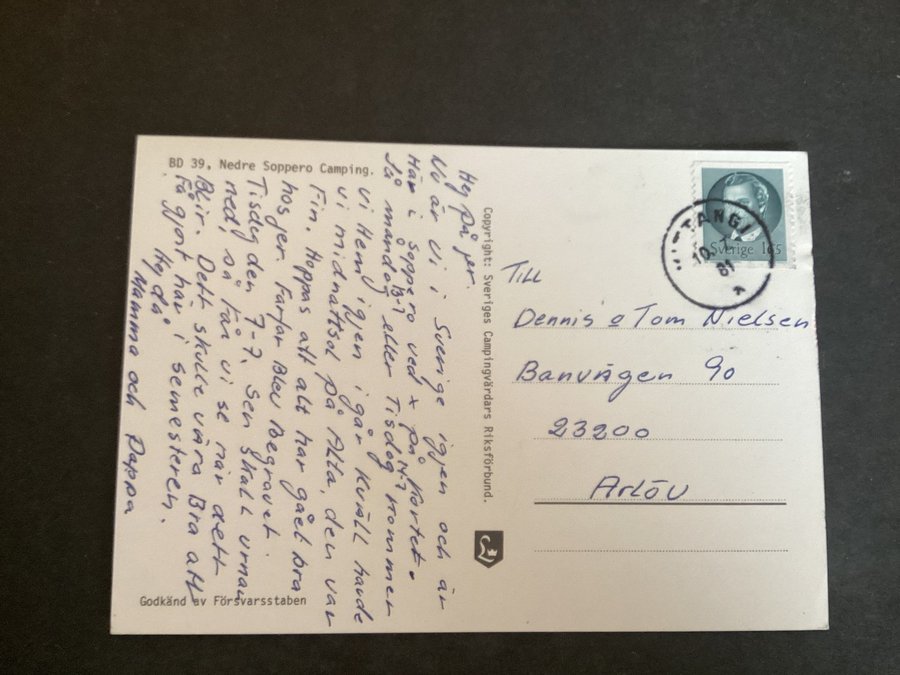 BD 39, Nedre Soppero Camping.
Hej på jer.
Nu är vi i Sverige igjen och är
Här i Soppero ved x på kortet.
Så måndag 13-7 eller Tisdag 14-7 kommer
vi Hem igjen i går kväll havde
vi midnattsol på Alta, den var
Fin. Hoppas att alt har gået bra
hos jer. Farfar Blev Begravet.
Tisdag den 7-7. Sen skall urnan
ned, så får vi se når dett
Blir. Dett skulle våra Bra att
Få gjort här i semesteren.
Hej då
Mamma och Pappa
Copyright: Sveriges Campingvärdars Riksförbund.
Godkänd av Försvarsstaben
Sverige 165
VITTANGI
10.7.
81
Till
Dennis o Tom Nielsen
Banvägen 90
23200
Arlöv